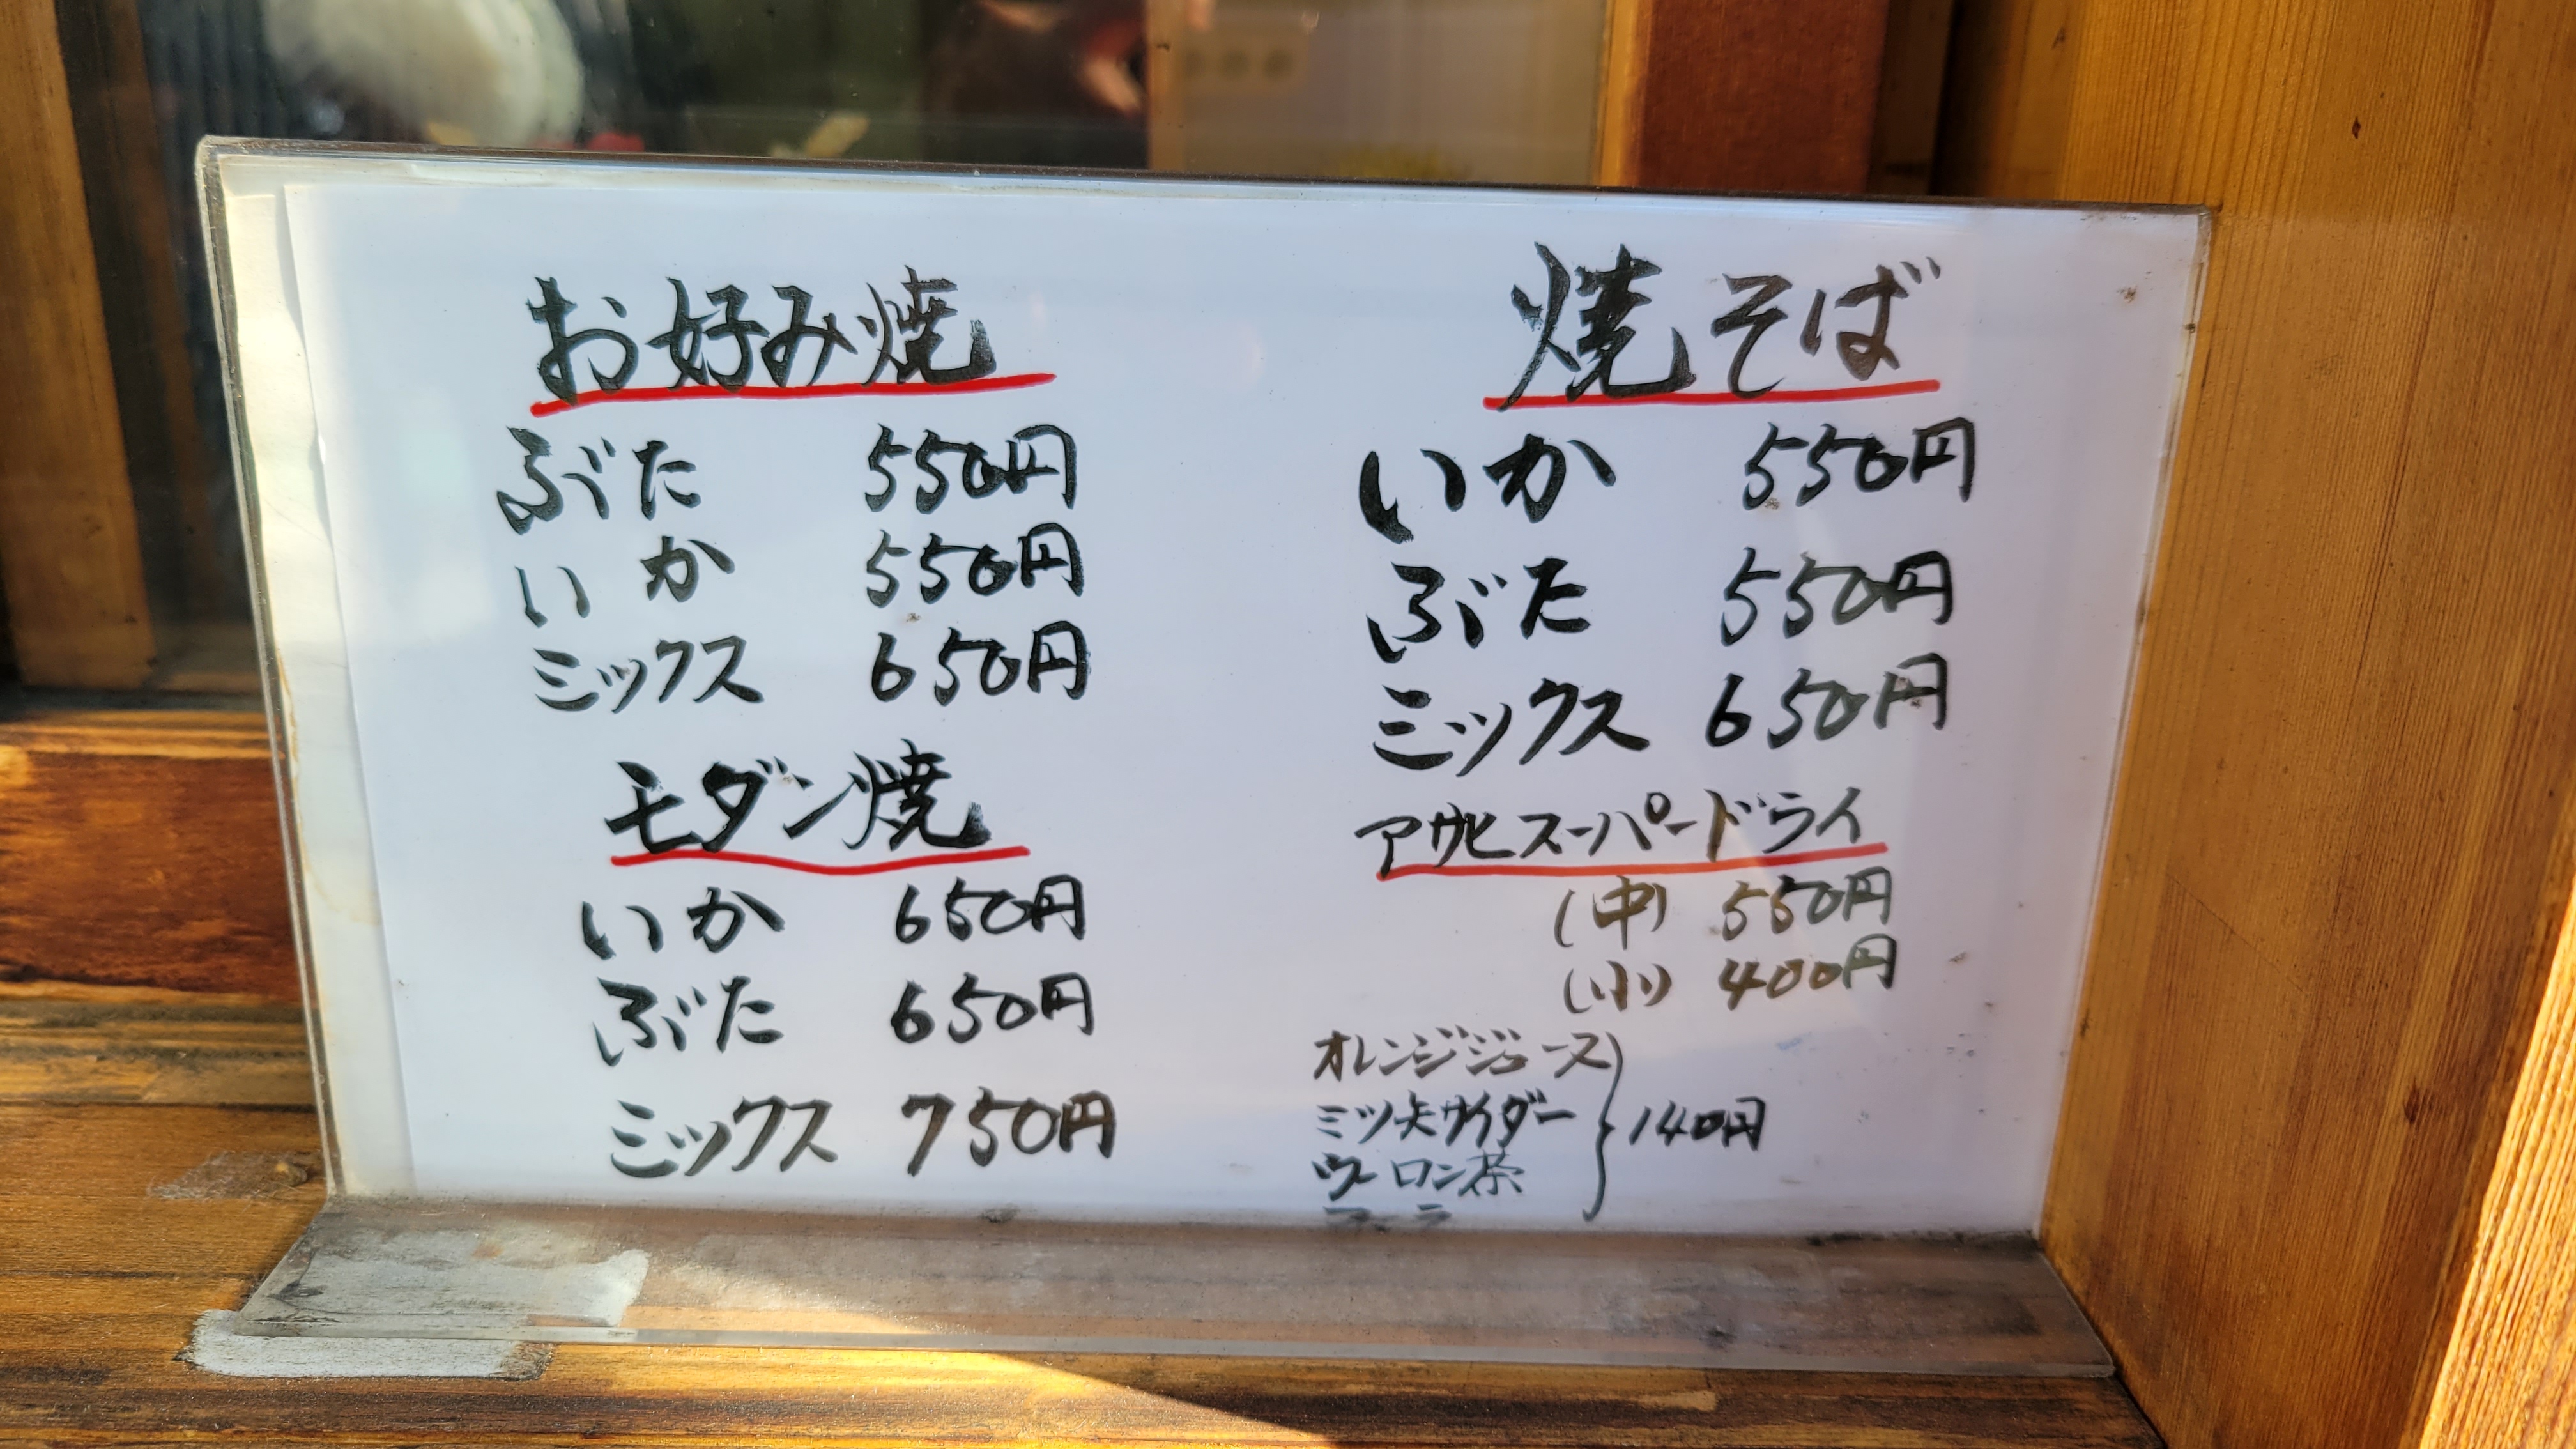 お好み焼
ぶた 550円
いか 550円
ミックス 650円
モダン焼
いか 650円
ぶた 650円
ミックス 750円
焼そば
いか 550円
ぶた 550円
ミックス 650円
アサヒスーパードライ
(中) 550円
(小) 400円
オレンジジュース
ミツ矢サイダー 140円
ウーロン茶